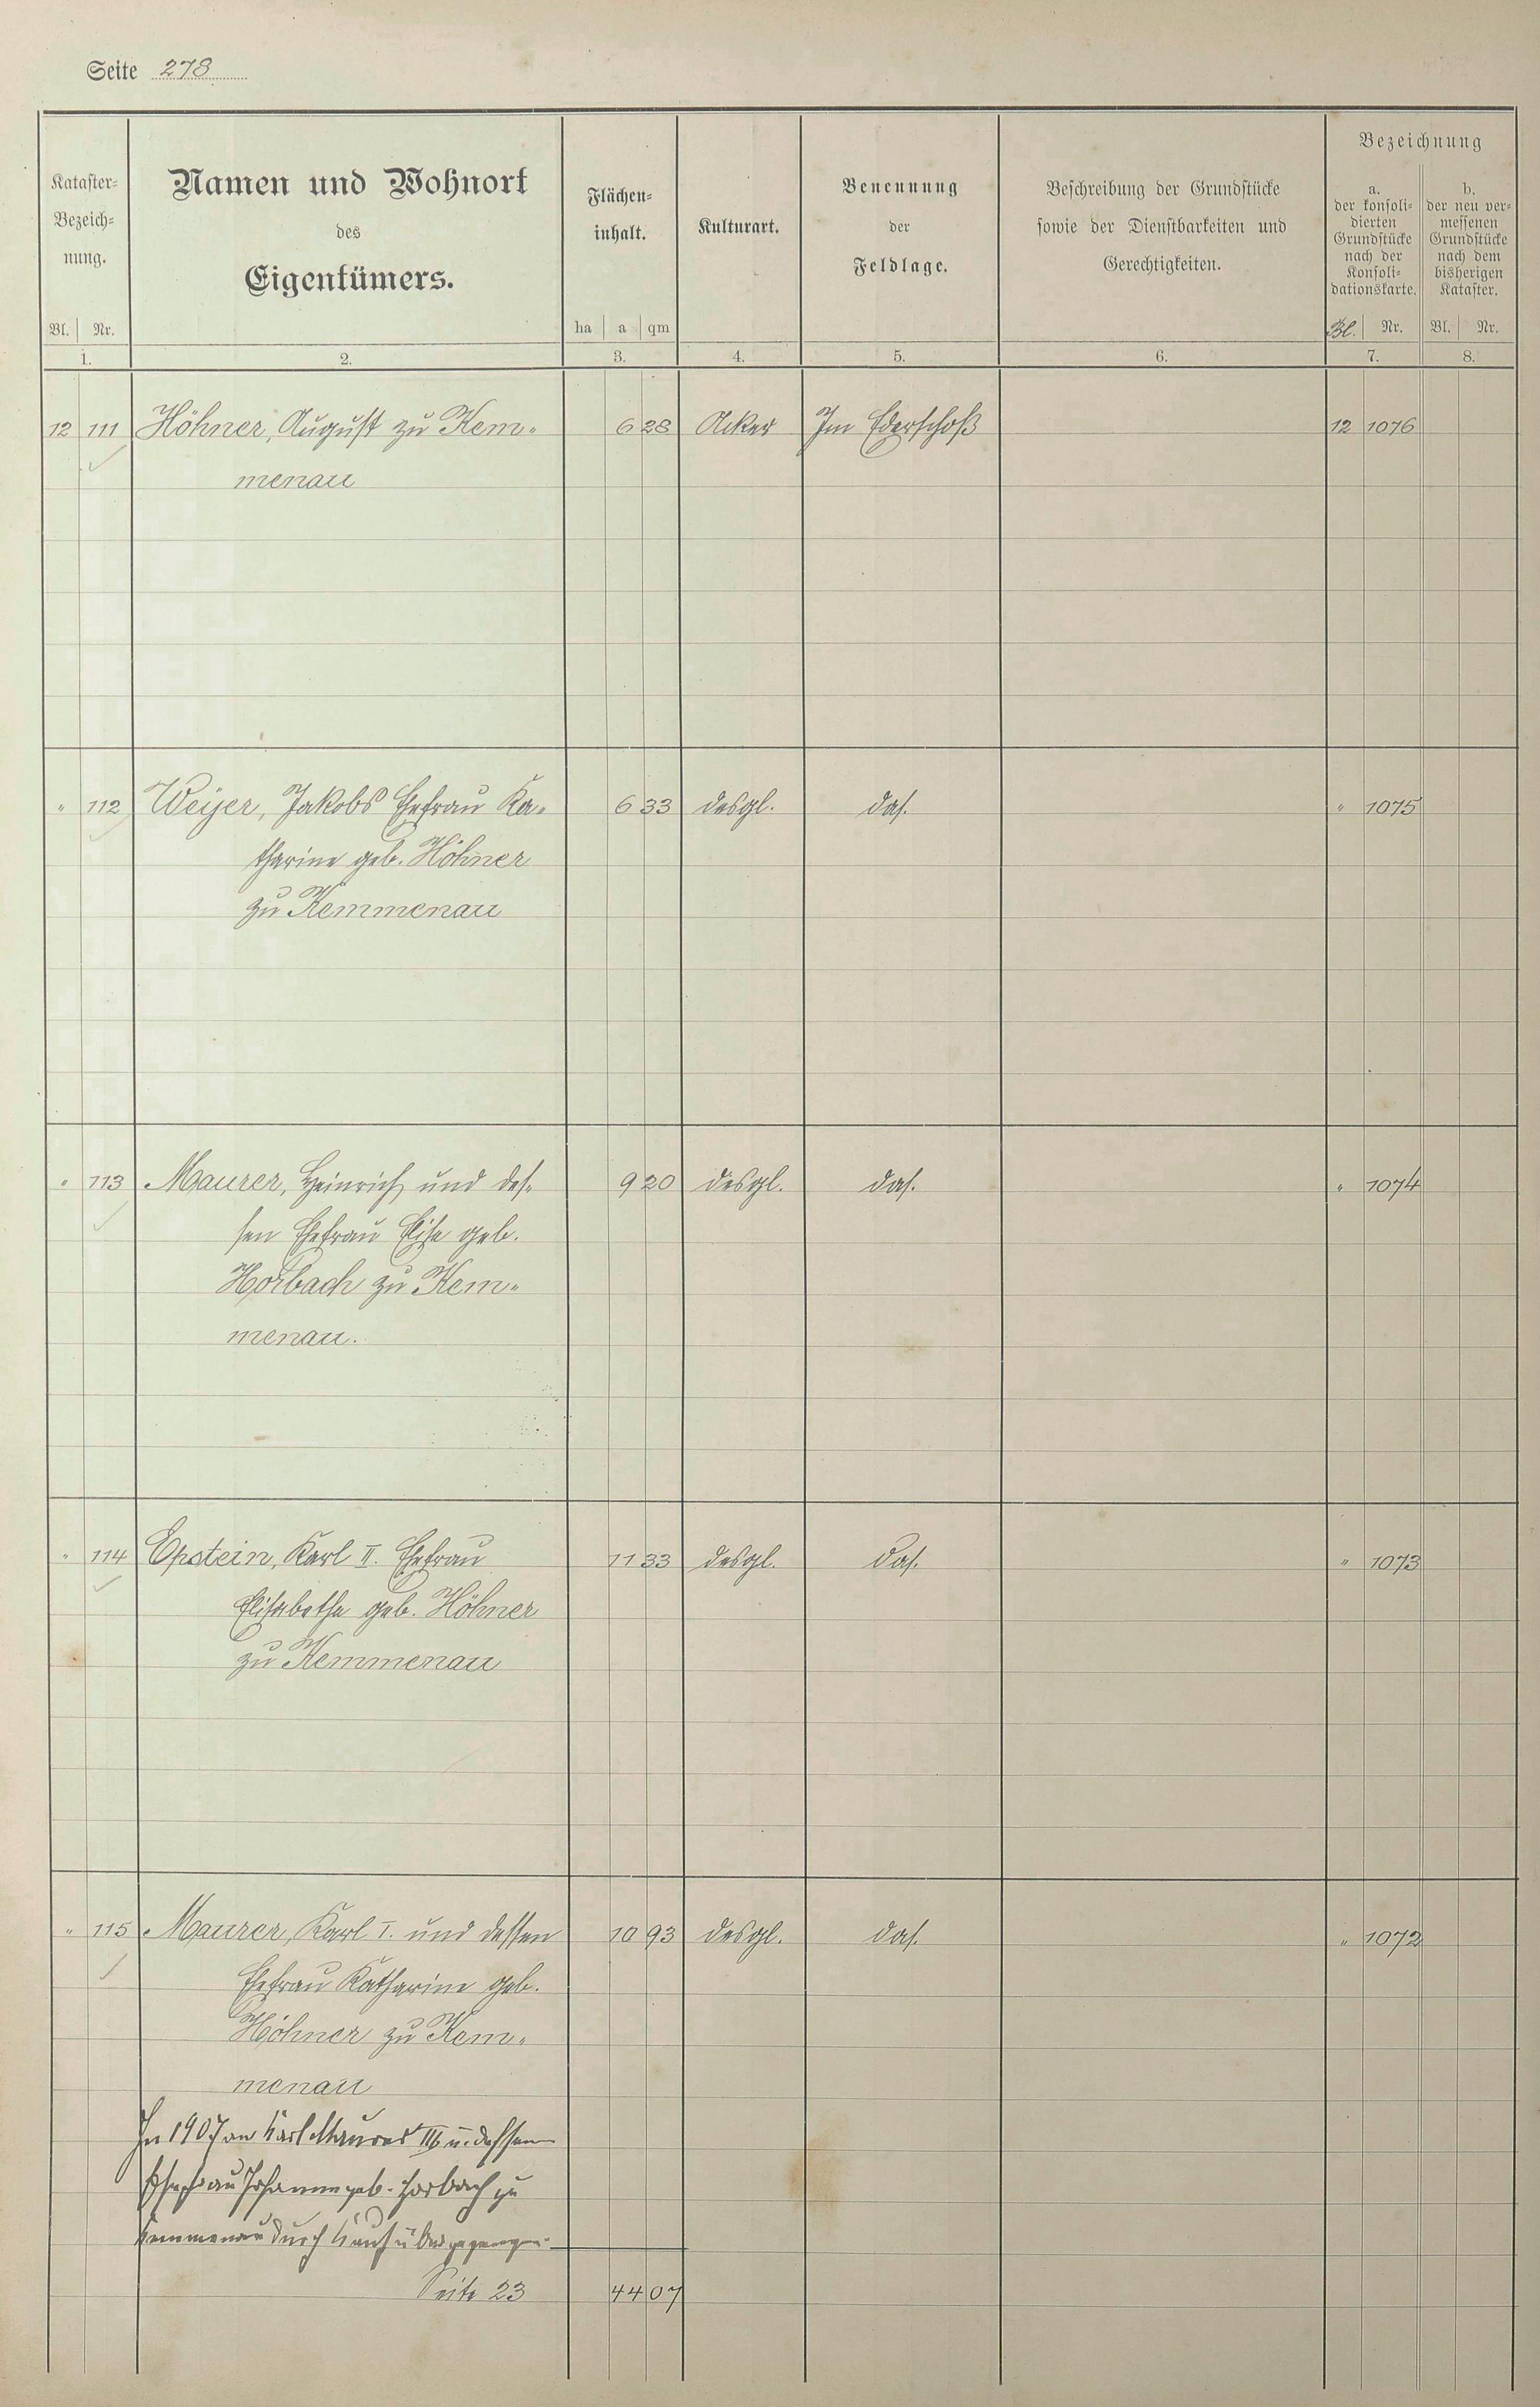 Seite 278
Kataster-
Bezeich-
nung.
Bl. Nr.
1.
Namen und Wohnort
des
Eigentümers.
2.
Flächen-
inhalt.
ha a qm
3.
Kulturart.
4.
Benennung
der
Feldlage.
5.
Beschreibung der Grundstücke
sowie der Dienstbarkeiten und
Gerechtigkeiten.
6.
Bezeichnung
a.
der konsoli-
dierten
Grundstücke
nach der
Konsoli-
dationskarte.
Bl. Nr.
7.
b.
der neu ver-
messenen
Grundstücke
nach dem
bisherigen
Kataster.
Bl. Nr.
8.
12 111 Höhner, August zu Kem- 6 28 Acker Im Ederschoß 12 1076
menau
" 112 Weyer, Jakobs Ehefrau Ka- 6 33 desgl. das. " 1075
tharine geb. Höhner
zu Kemmenau
" 113 Maurer, Heinrich und des- 9 20 desgl. das. " 1074
sen Ehefrau Elise geb.
Horbach zu Kem-
menau.
" 114 Epstein, Karl II. Ehefrau 11 33 desgl. das. " 1073
Elisabetha geb. Höhner
zu Kemmenau
" 115 Maurer, Karl I. und dessen 10 93 desgl. das. " 1072
Ehefrau Katharine geb.
Höhner zu Kem-
menau
In 1907 an Karl Maurer III u. dessen
Ehefrau Johanna geb. Horbach zu
Kemmenau durch Kauf übergegangen.
Seite 23 44 07